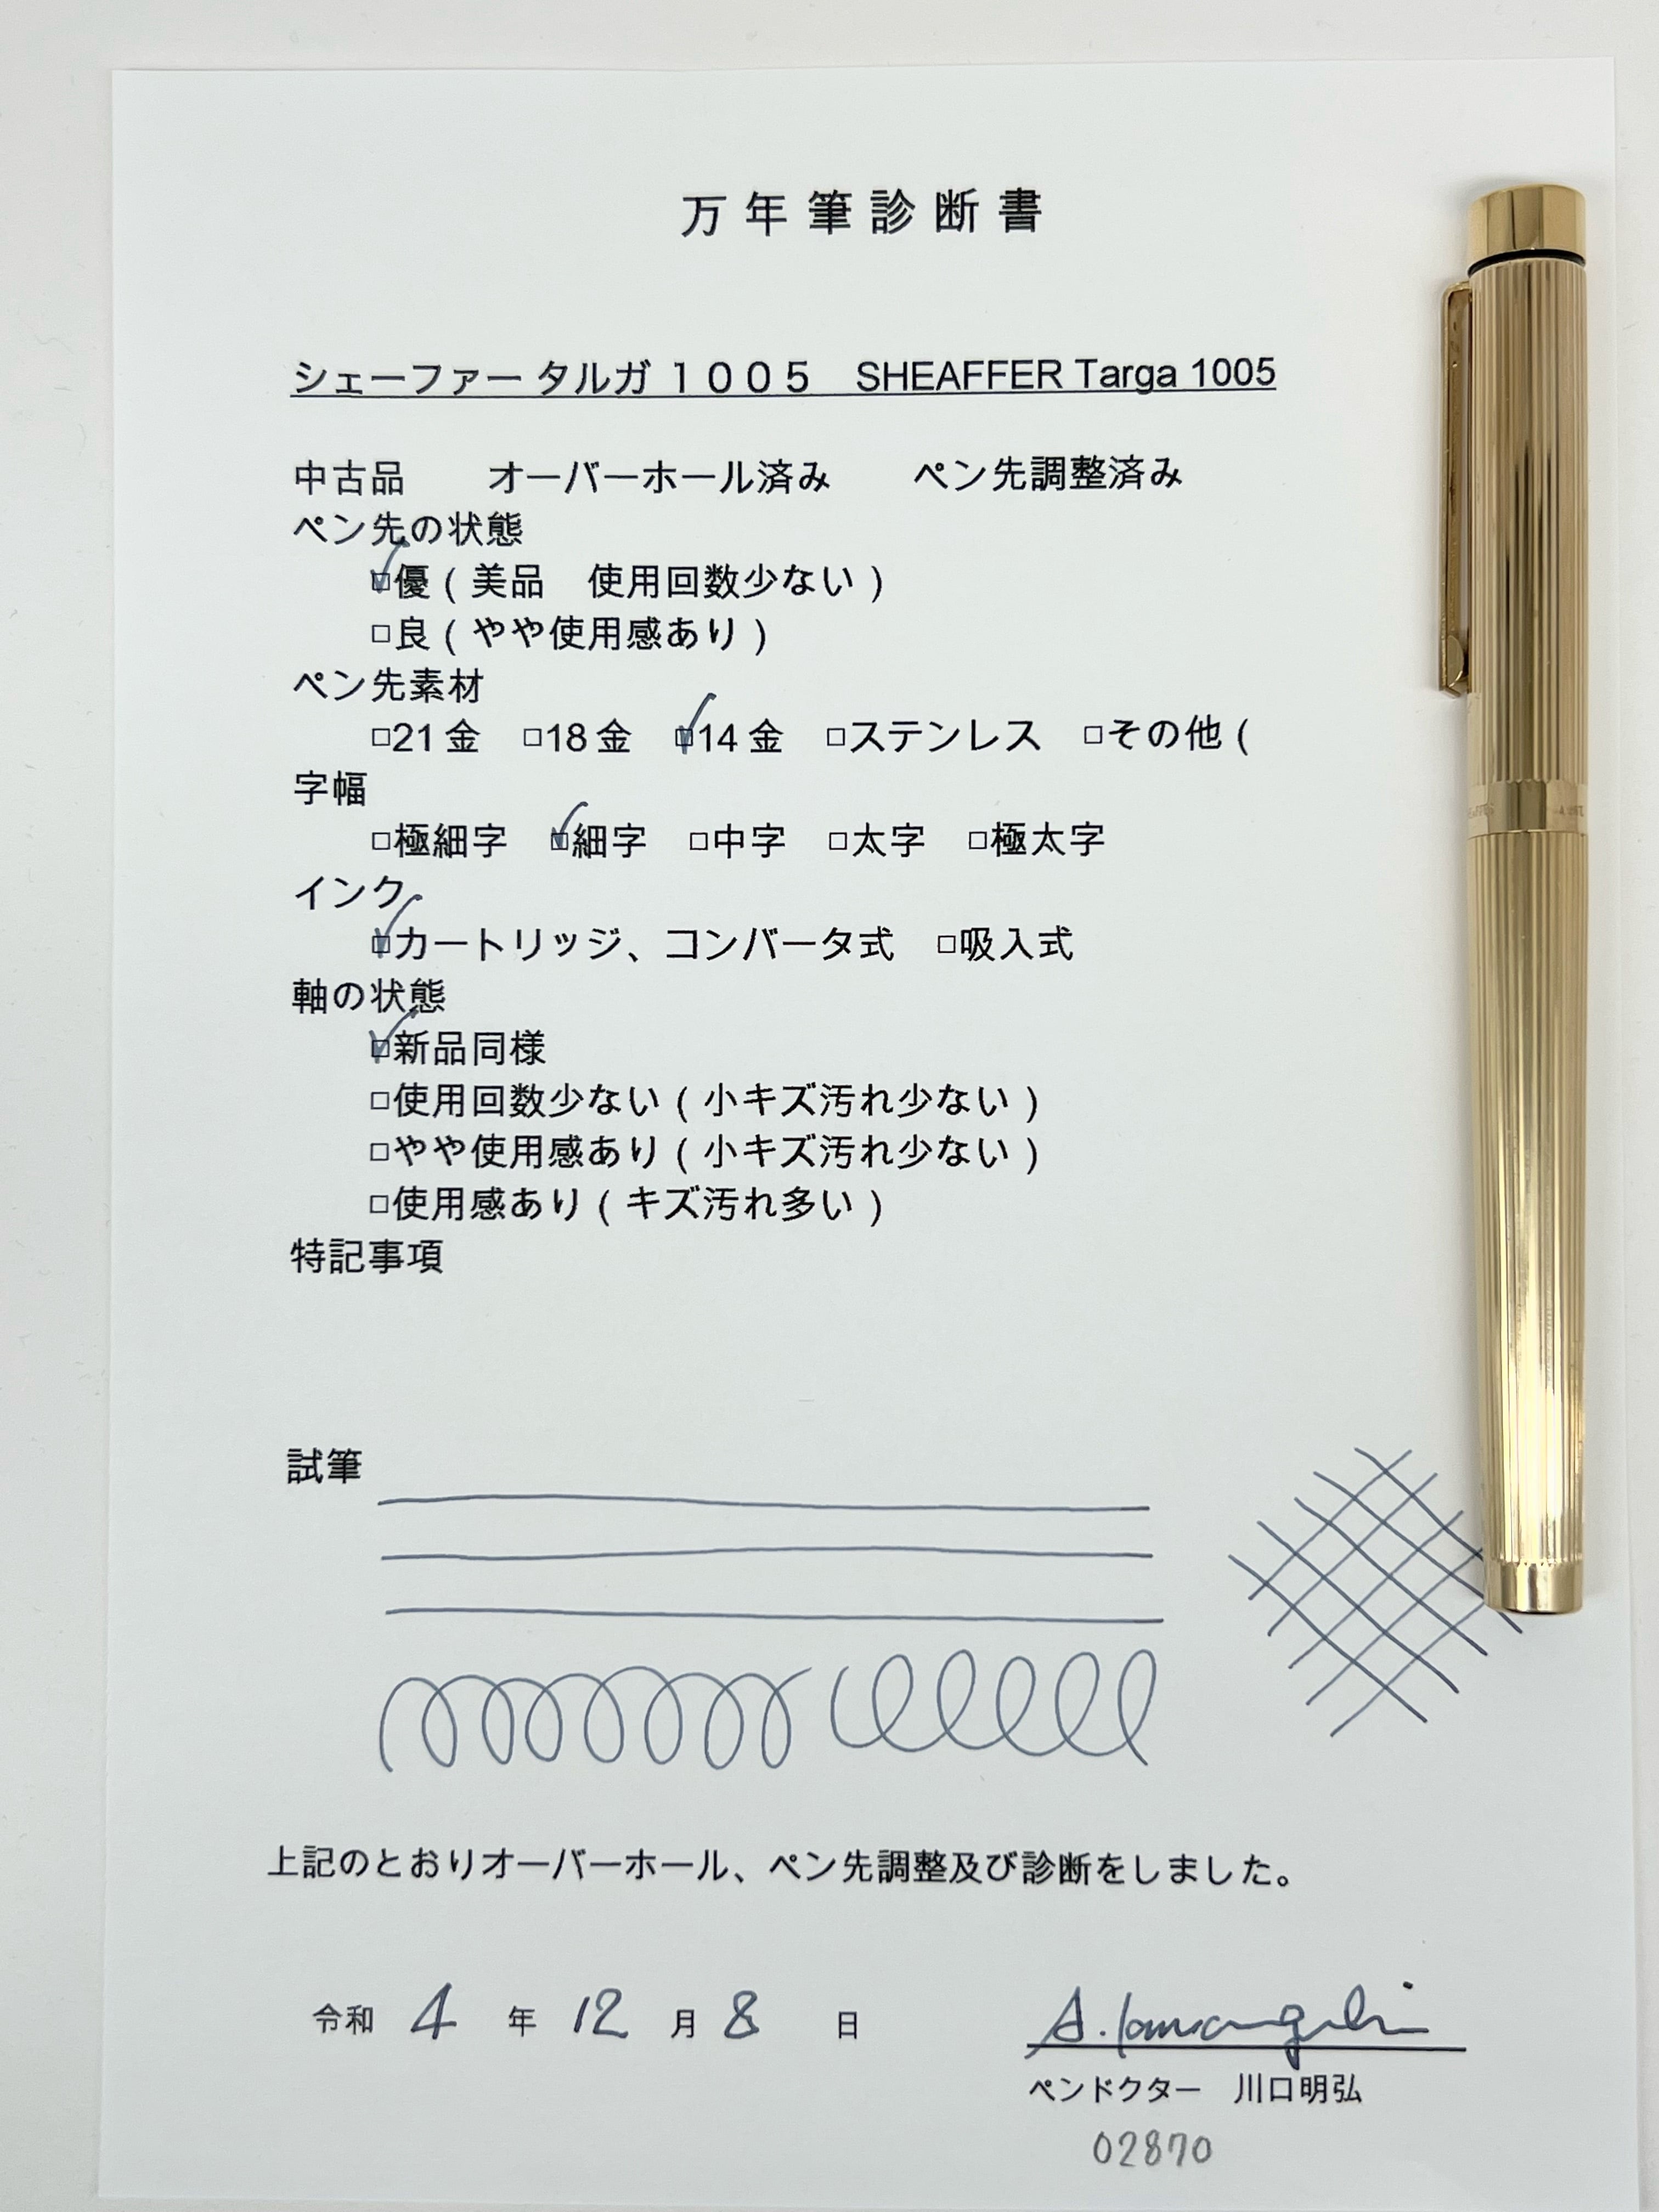 万年筆診断書
シェーファー タルガ １００５　SHEAFFER Targa 1005
中古品　　オーバーホール済み　　ペン先調整済み
ペン先の状態
☑優（美品　使用回数少ない）
□良（やや使用感あり）
ペン先素材
□21金　□18金　☑14金　□ステンレス　□その他（
字幅
□極細字　☑細字　□中字　□太字　□極太字
インク
☑カートリッジ、コンバータ式　□吸入式
軸の状態
☑新品同様
□使用回数少ない（小キズ汚れ少ない）
□やや使用感あり（小キズ汚れ少ない）
□使用感あり（キズ汚れ多い）
特記事項
試筆
上記のとおりオーバーホール、ペン先調整及び診断をしました。
令和 4 年 12 月 8 日
ペンドクター　川口明弘
02870